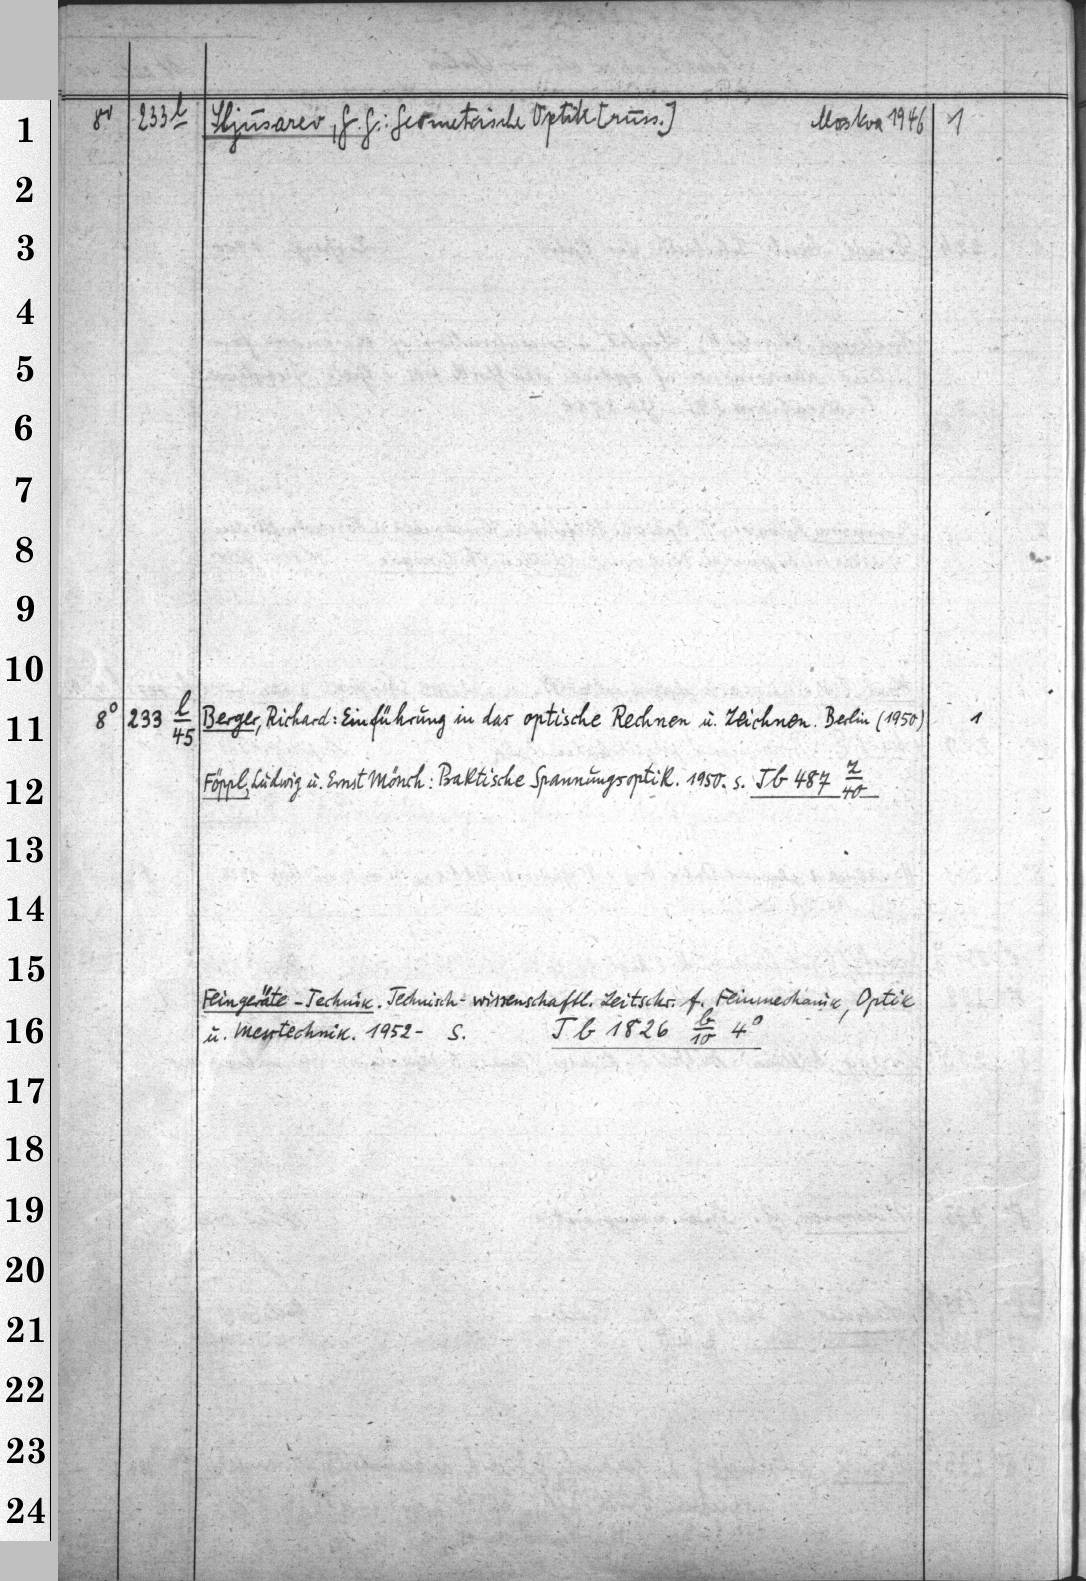 1 8° 233 l Sljusarev, G. G.: Geometrische Optik [russ.] Moskva 1946 1
2
3
4
5
6
7
8
9
10
11 8° 233 l/45 Berger, Richard: Einführung in das optische Rechnen u. Zeichnen. Berlin (1950) 1
12 Föppl, Ludwig u. Ernst Mönch: Praktische Spannungsoptik. 1950. s. Jb 487 z/40
13
14
15
Feingeräte-Technik. Technisch-wissenschaftl. Zeitschr. f. Feinmechanik, Optik
16 u. Messtechnik. 1952- s. Jb 1826 b/10 4°
17
18
19
20
21
22
23
24